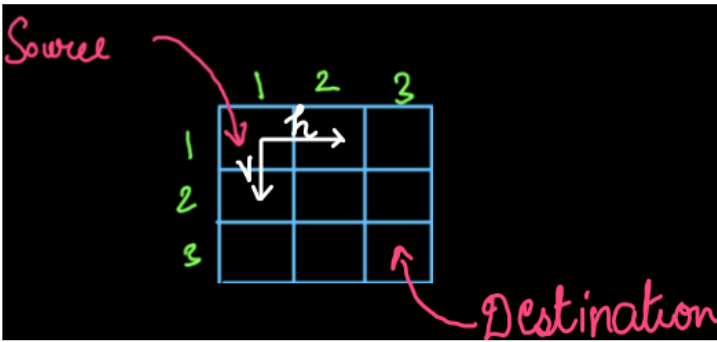 Source
1 2 3
1 h
V
2
3
Destination